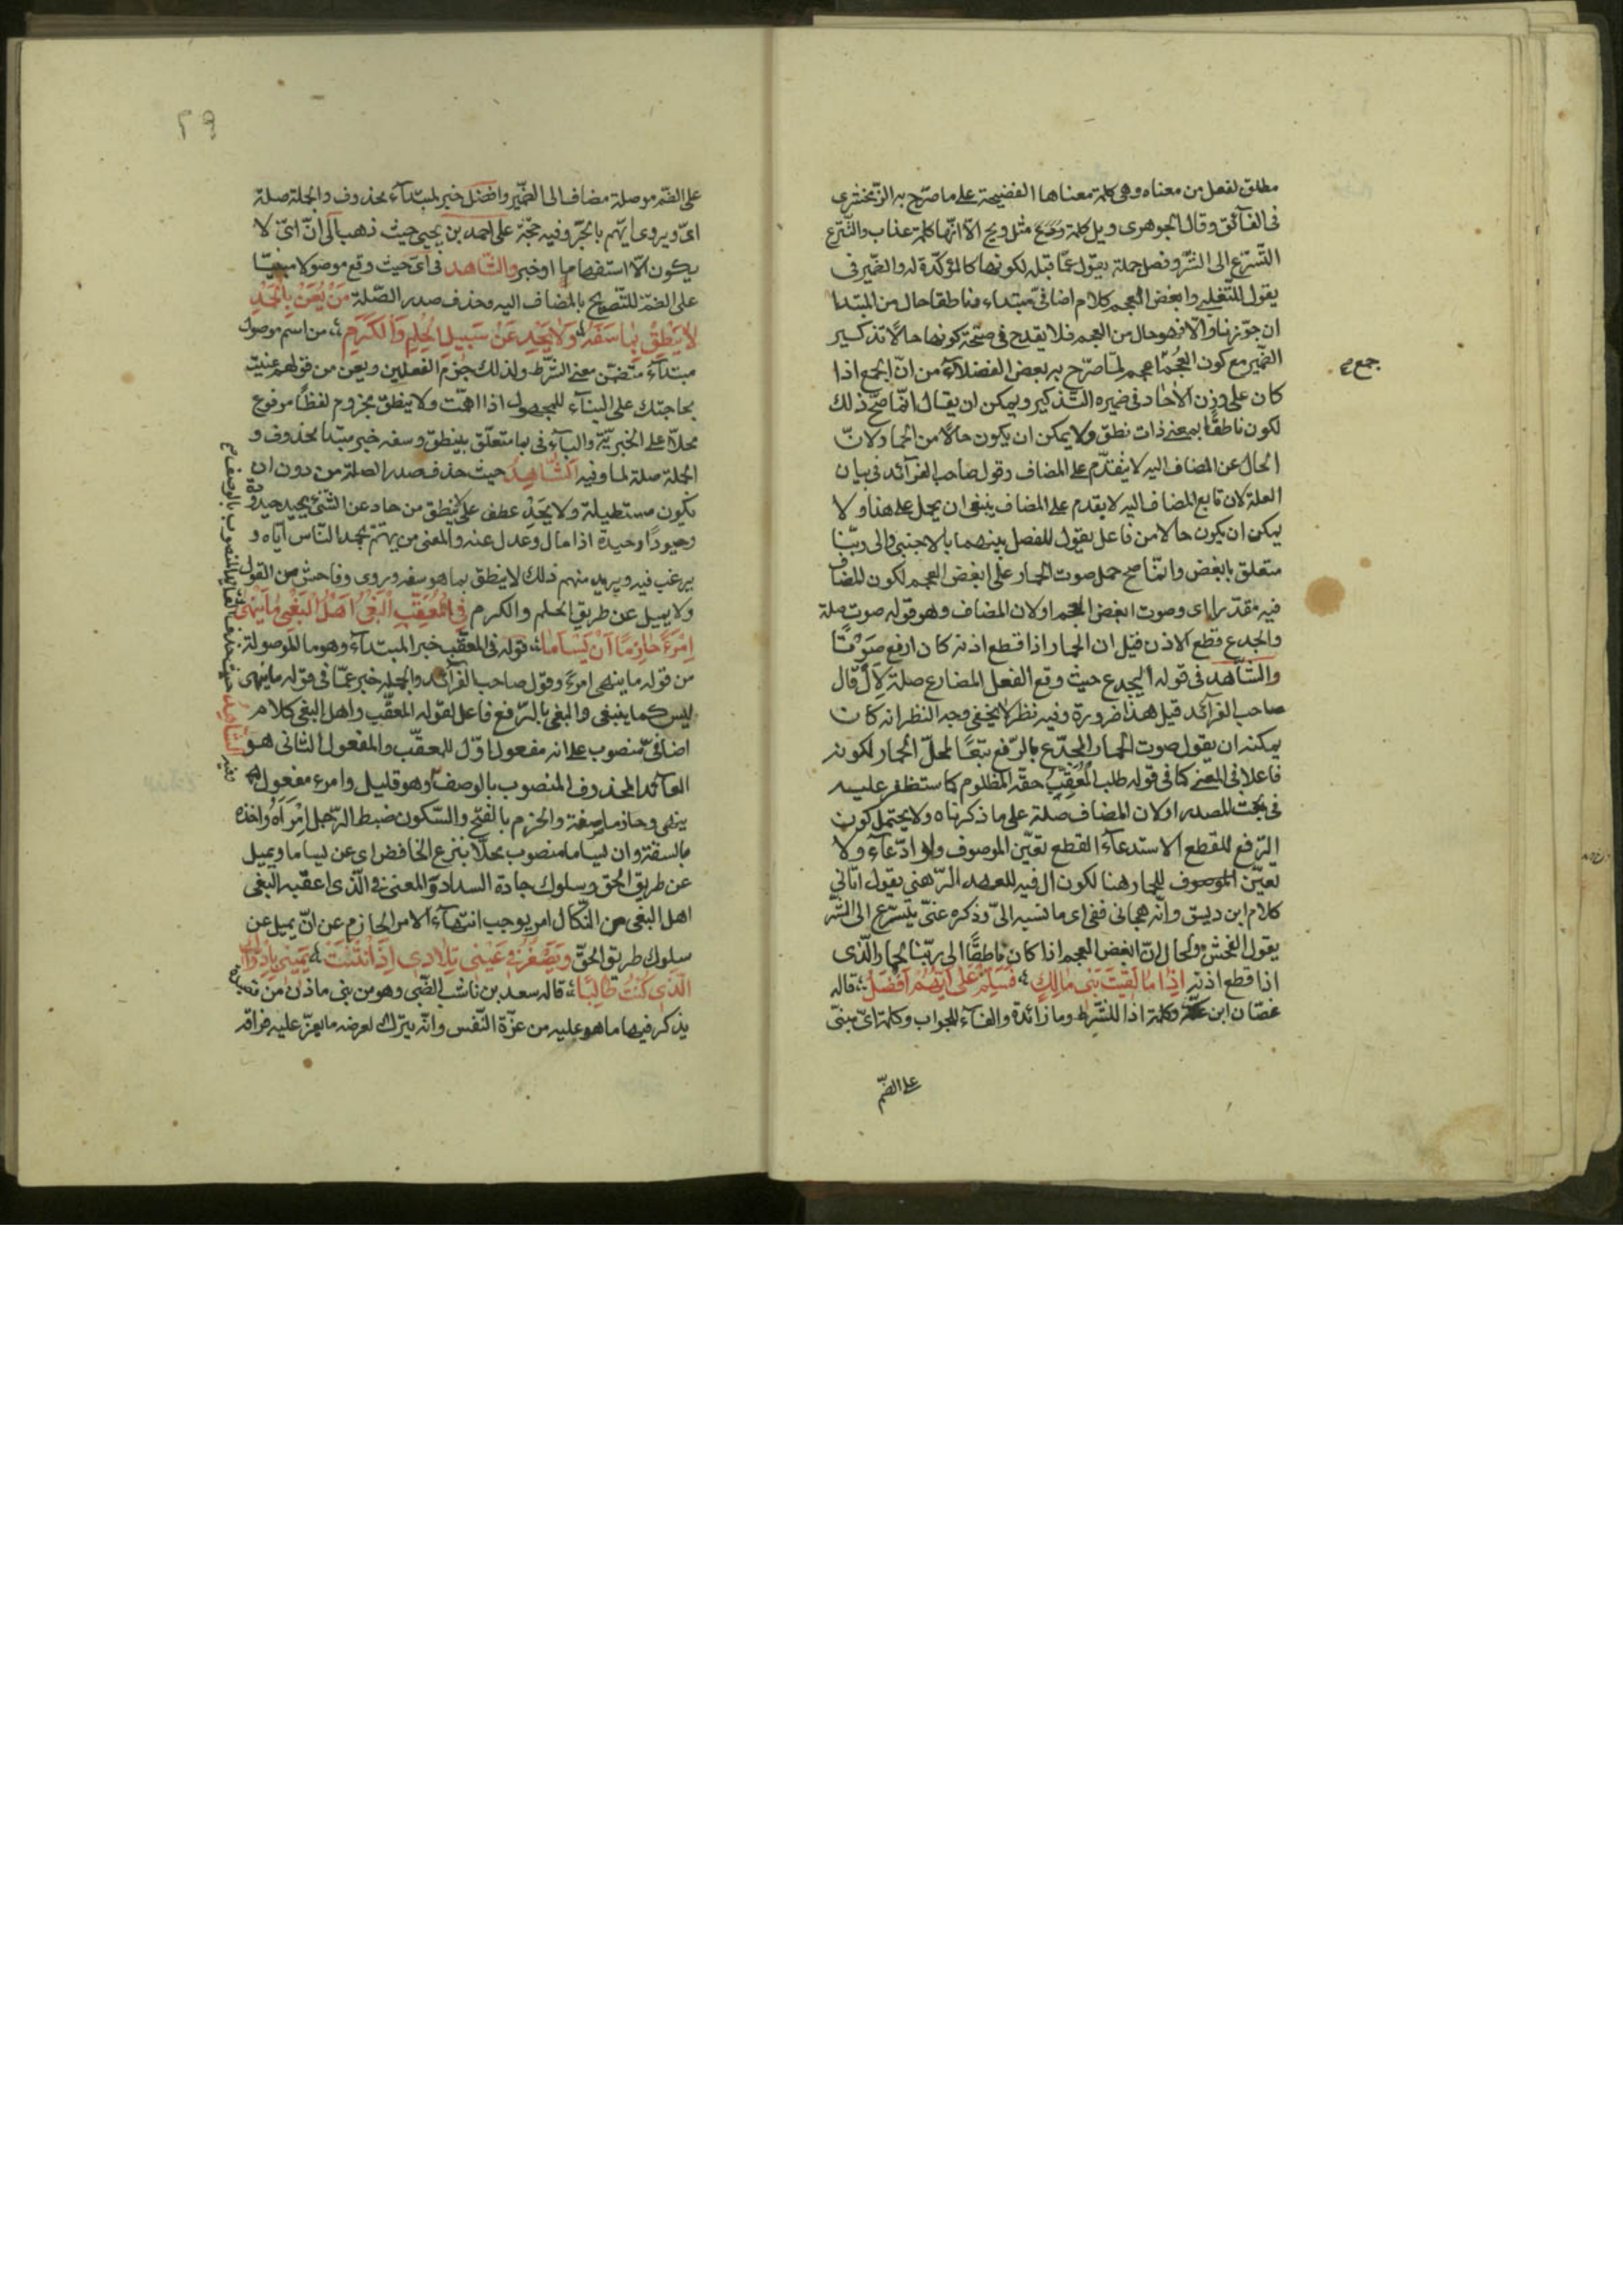 مطلق لفعل من معناه وهى كلمة معناها الفضيحة على ما صرّح به الزّمخشرى
فى الفآئق وقال الجوهرى ويل كلمة مثل ويح الّا انّها كلمة عذاب والتّترع
التّسرّع الى الشّر وفصل جملة يقول عمّا قبله لكونها كالمؤكّدة له والضّمير فى
يقول للتّغلبى وابغض العجم كلام اضافىّ مبتداء وناطقا حال من المبتدا
ان جوّزناه والّا فهو حال من العجم فلا يقدح فى صحّة كونها حالًا تذكير
الضّمير مع كون العُجْم اعجم لما صرّح به بعض الفضلآء من انّ الجمع اذا
جمع
كان على وزن الاحاد فى ضميره التّذكير ويمكن ان يقال انّما صحّ ذلك
لكون ناطقًا بمعنى ذات نطق ولا يمكن ان يكون حالًا من الحمار لانّ
الحال عن المضاف اليه لا يتقدّم على المضاف وقول صاحب الفرآئد فى بيان
العلة لان تابع المضاف اليه لا يقدم على المضاف ينبغى ان يحمل على هذا ولا
يمكن ان يكون حالا من فاعل يقول للفصل بينهما بالاجنبى والى ربّنا
متعلق بابغض وانّما صح حمل صوت الحمار على ابغض العجم لكون المضاف
فيه مقدّرا اى وصوت ابغض العجم او لان المضاف وهو قوله صوت صلة
والجدع قطع الاذن قيل ان الحمار اذا قطع اذنه كان ارفع صَوْتًا
والشّاهد فى قوله اليجدع حيث وقع الفعل المضارع صلة لِاَلْ قال
صاحب الفرآئد قيل هذا ضرورة وفيه نظر لا يخفى وجه النظر انه كان
يمكنه ان يقول صوت الحمار المجدّع بالرّفع تبعًا لمحلّ الحمار لكونه
فاعلا فى المعنى كما فى قوله طلب المُعَقِّبِ حقّه المظلوم كما ستظفر عليه
فى بحث المصدر او لان المضاف صلة على ما ذكرناه ولا يحتمل كون
الرّفع للقطع الاستدعآء القطع تعيّن الموصوف ولو ادّعآء ولا
تعيّن الموصوف للحمار هنا لكون ال فيه للعهد الذّهنى يقول اتانى
كلام ابن ديسق وانّه هجانى ففى اى ما نسبه الىّ وذكره عنّى يتسرّع الى الشّر
يقول الفحش والحال انّ ابغض العجم اذا كان ناطقًا الى ربّنا الحمار الّذى
اذا قطع اذنه اِذَا مَا لَقِيتَ بَنِى مَالِكٍ فَسَلِّمْ عَلَى اَيُّهُمْ اَفْضَلُ قاله
غسّان ابن وكلمة اذا للشّرط وما زائدة والفآء للجواب وكلمة اىّ مبنىّ
على الضّم
٢٩
على الضّم موصلة مضاف الى الضّمير وافضل خبر لمبتدآء محذوف والجملة صلة
اىّ ويروى ايّهم بالجّر وفيه حجّة على احمد بن يحيى حيث ذهب الى انّ اىّ لا
يكون الّا استفهاما او خبر والشّاهد فى اىّ حيث وقع موصولا مبنيّا
على الضّم للتّصريح بالمضاف اليه وحذف صدر الصّلة مَنْ يُعْنَ بِالْحَمْدِ
لَا يَنْطِقْ بِمَا سَفَهٌ وَلَا يَحِدْ عَنْ سَبِيلِ الْحِلْمِ وَالْكَرَمِ من اسم موصول
مبتدآء متضمّن معنى الشّرط ولذلك جزم الفعلين ويعن من قولهم عنيت
بحاجتك على البنآء للمجهول اذا اهمّت ولا ينطق مجزوم لفظًا مرفوع
محلّا على الخبريّة والبآء فى بما متعلّق بينطق وسفه خبر مبتدا محذوف و
الجملة صلة لما وفيه اَلشَّاهِدُ حيث حذف صدر الصلة من دون ان
تكون مستطيلة ولا يَحِدْ عطف على ينطق من حاد عن الشّئ يحيد حيدودة
وحيودًا وحيدة اذا مال وعدل عنه والمعنى من يهتمّ بحمد النّاس ايّاه و
يرغب فيه ويريد منهم ذلك لا ينطق بما هو سفه وروى وفاحش من القول
ولا يميل عن طريق الحلم والكرم فِى الْمُعَقِّبِ الْبَغْىُ اَهْلَ الْبَغْىِ مَا يَنْهَى
اِمْرَءً حَازِمًا اَنْ يَسْاَمَا قوله فى المعقّب خبر المبتدآء وهو ما الموصولة
من قوله ما ينهى امرءً وقول صاحب الفرآئد والجملة خبر عمّا فى قوله ما ينهى
ليس كما ينبغى والبغى بالرّفع فاعل لقوله المعقّب واهل البغى كلام
اضافىّ منصوب على انه مفعول اوّل للمعقّب والمفعول الثانى هو
العآئد المحذوف المنصوب بالوصف وهو قليل وامرء مفعول
ينهى وحازما صفة والحزم بالفتح والسّكون ضبط الرّجل اَمْرَهُ واخذه
بالسقة وان يساما منصوب محلّا بنزع الخافض اى عن يساما ويميل
عن طريق الحق وسلوك جادة السداد والمعنى فى الّذى اعقبه البغى
اهل البغى من النّكال امر يوجب انتهآء الامر الحازم عن انّ يميل عن
سلوك طريق الحقّ وَيَصْغُرُ فِى عَيْنِى تِلَادِى اِذَا انْثَنَتْ يَمِينِى بِاِدْرَاكِ
الَّذِى كُنْتُ طَالِبًا قاله سعد بن ناشب الضّبى وهو من بنى ماذن من قصيدة
يذكر فيها ما هو عليه من عزّة النّفس وانّه يترك لعرضه ما يعزّ عليه فراقه
وفيه الشَّاهِدُ حيث حذف العآئد المنصوب بالوصف